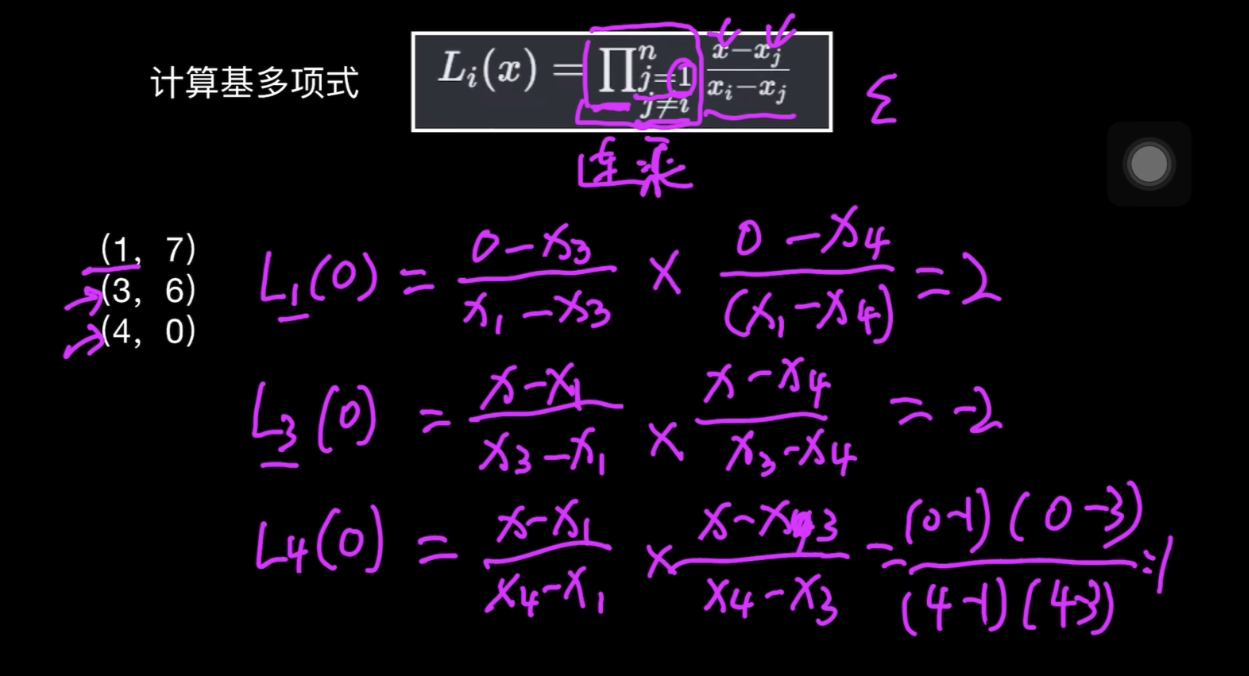 计算基多项式 L_i(x) = ∏_{j=1, j≠i}^{n} \frac{x-x_j}{x_i-x_j} Σ
连乘
(1, 7)
(3, 6)
(4, 0)
L_1(0) = \frac{0-x_3}{x_1-x_3} × \frac{0-x_4}{(x_1-x_4)} = 2
L_3(0) = \frac{x-x_1}{x_3-x_1} × \frac{x-x_4}{x_3-x_4} = -2
L_4(0) = \frac{x-x_1}{x_4-x_1} × \frac{x-x_3}{x_4-x_3} = \frac{(0-1)(0-3)}{(4-1)(4-3)} = 1